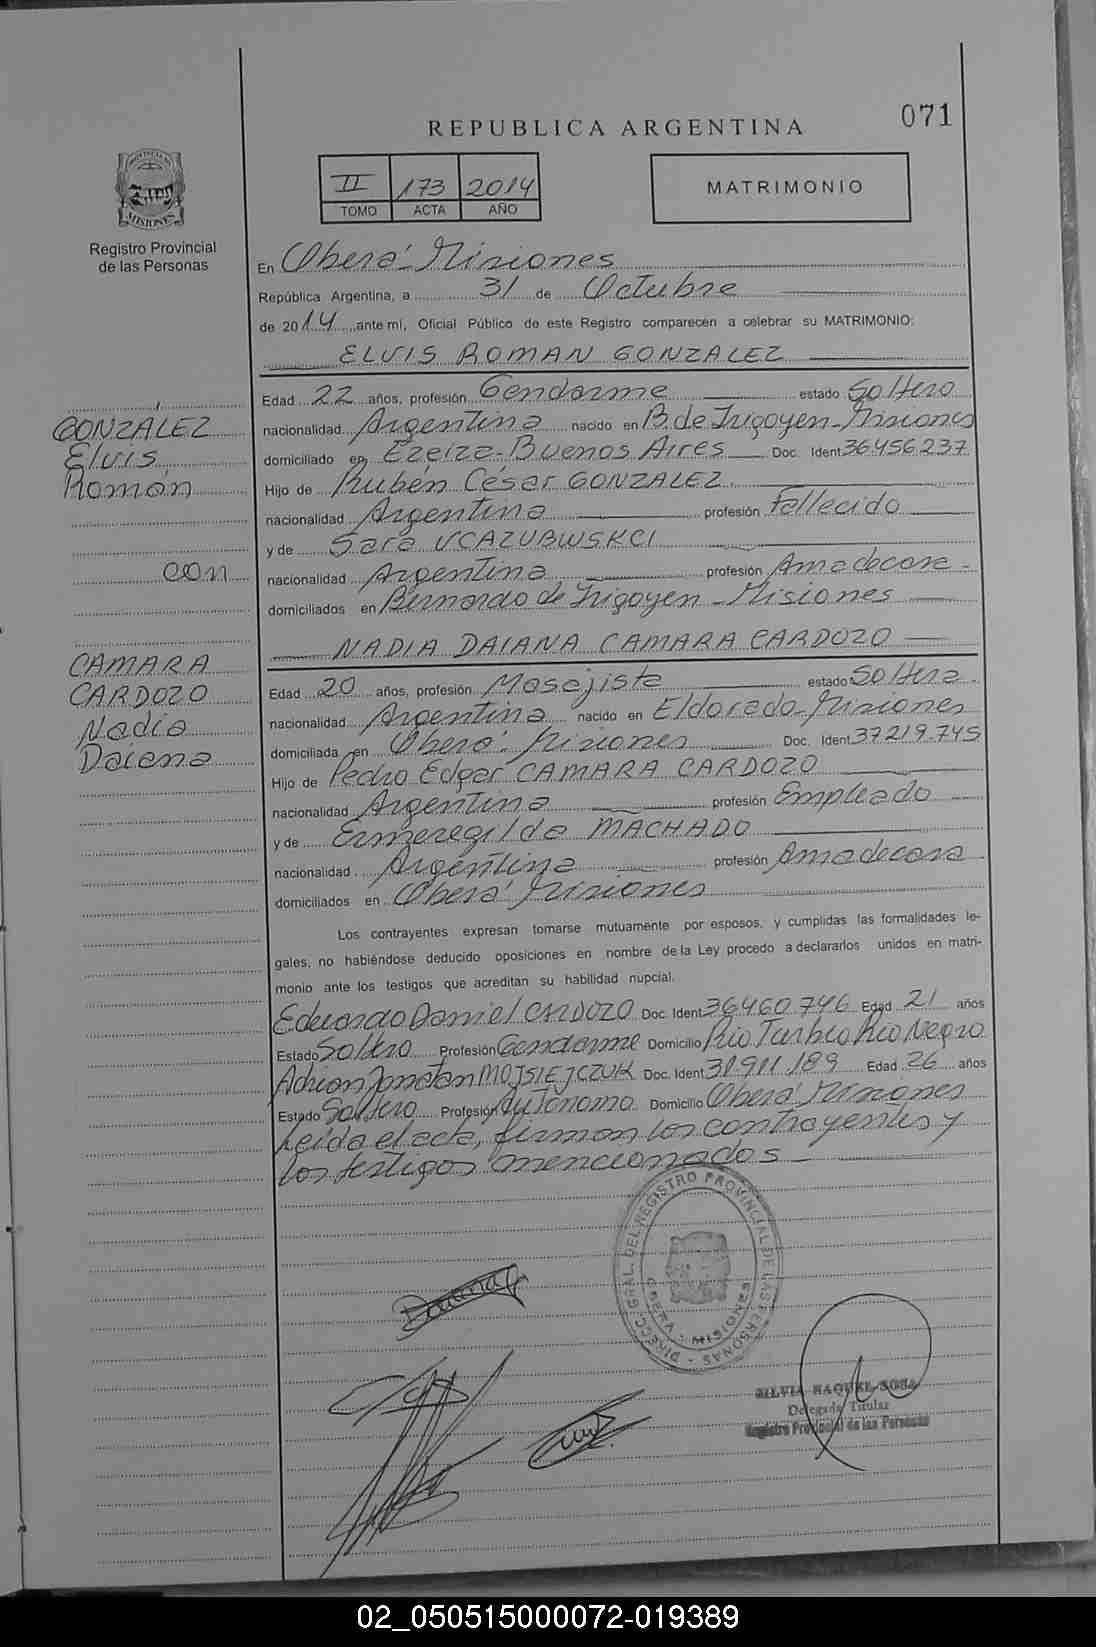 071
REPUBLICA ARGENTINA
II 173 2014
TOMO ACTA AÑO
MATRIMONIO
PROVINCIA DE
MISIONES
Registro Provincial
de las Personas
En Oberá - Misiones
República Argentina, a 31 de Octubre
de 2014 ante mí, Oficial Público de este Registro comparecen a celebrar su MATRIMONIO:
ELVIS ROMAN GONZALEZ
Edad 22 años, profesión Gendarme estado Soltero
nacionalidad Argentina nacido en B. de Irigoyen - Misiones
domiciliado en Ezeiza - Buenos Aires Doc. Ident 36.456.237
Hijo de Rubén César GONZALEZ
nacionalidad Argentina profesión Fallecido
y de Sara UCAZUBWSKCI
nacionalidad Argentina profesión Ama de casa -
domiciliados en Bernardo de Irigoyen - Misiones
NADIA DAIANA CAMARA CARDOZO
Edad 20 años, profesión Masajista estado Soltera
nacionalidad Argentina nacido en Eldorado - Misiones
domiciliada en Oberá - Misiones Doc. Ident 37.219.745
Hijo de Pedro Edgar CAMARA CARDOZO
nacionalidad Argentina profesión Empleado
y de Ermeregilda MACHADO
nacionalidad Argentina profesión Ama de casa
domiciliados en Oberá Misiones
GONZÁLEZ
Elvis
Román
con
CAMARA
CARDOZO
Nadia
Daiana
Los contrayentes expresan tomarse mutuamente por esposos, y cumplidas las formalidades le-
gales, no habiéndose deducido oposiciones en nombre de la Ley procedo a declararlos unidos en matri-
monio ante los testigos que acreditan su habilidad nupcial.
Eduardo Daniel CARDOZO Doc. Ident 36.460.746 Edad 21 años
Estado Soltero Profesión Gendarme Domicilio Rio Turbio Rio Negro
Adrian Jonatan MOJSIEJCZUK Doc. Ident 31.911.189 Edad 26 años
Estado Soltero Profesión Autónomo Domicilio Oberá Misiones
Leída el acta, firman los contrayentes y
los testigos mencionados
DIRECC. GRAL. DEL REGISTRO PROVINCIAL DE LAS PERSONAS
OBERA - MISIONES
SILVIA RAQUEL SOSA
Delegada Titular
Registro Provincial de las Personas
02_050515000072-019389